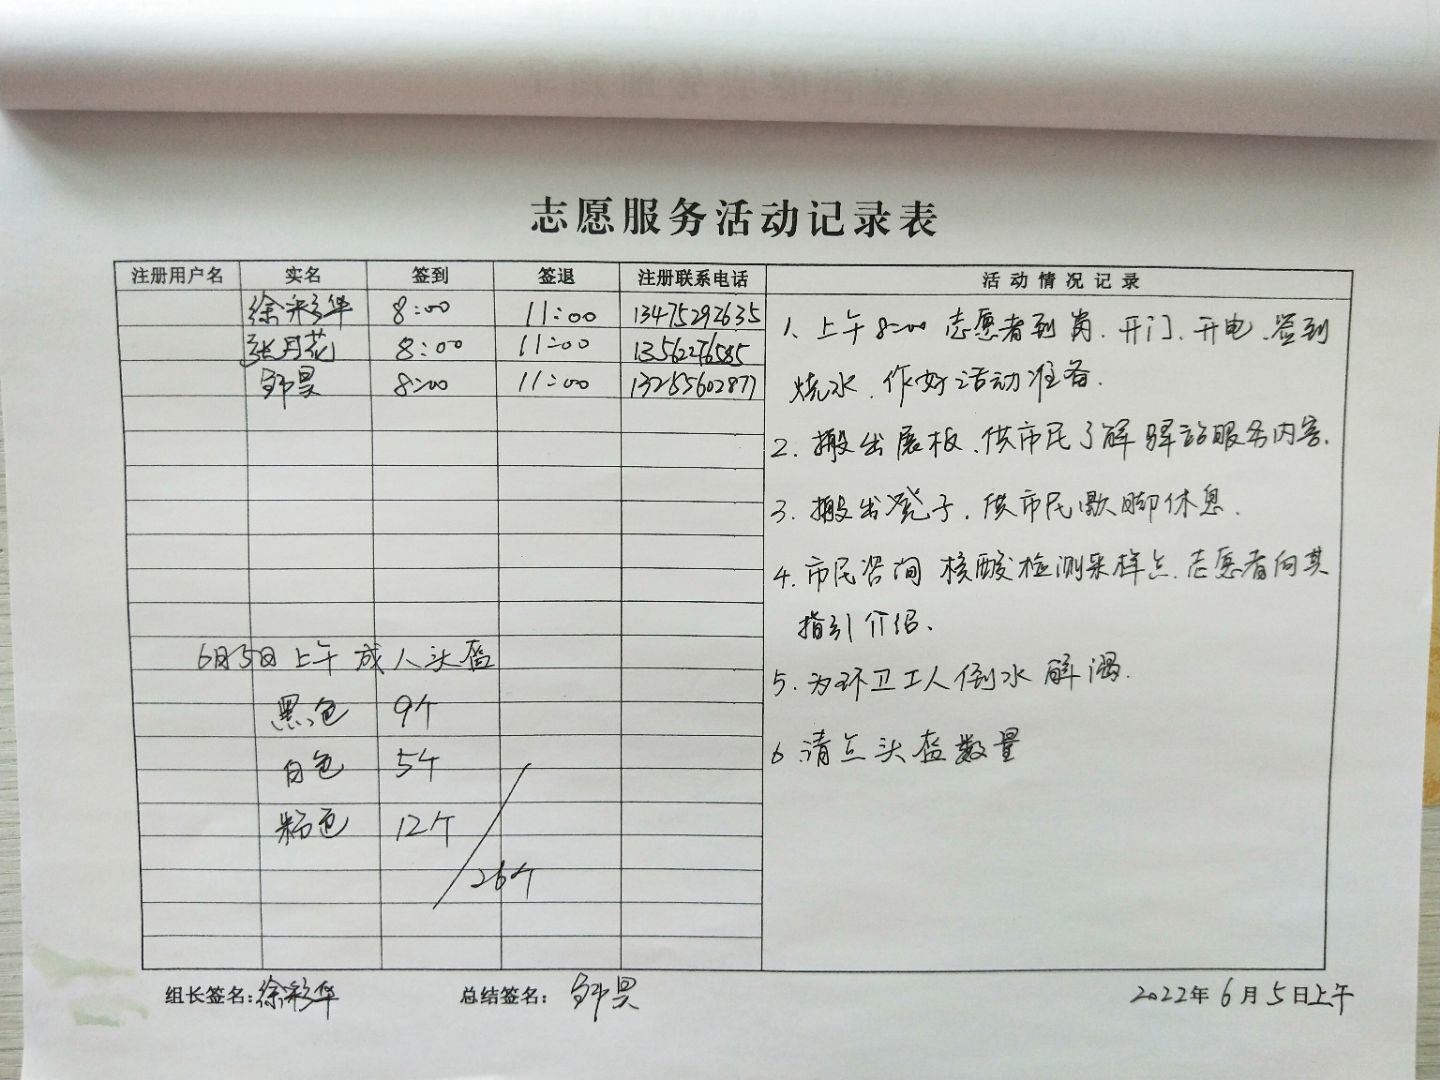 志愿服务活动记录表
注册用户名 实名 签到 签退 注册联系电话 活动情况记录
徐彩华 8:00 11:00 13475292635
张月花 8:00 11:00 13562276585
邹昊 8:00 11:00 13255602877
1、上午8:00志愿者到岗、开门、开电、签到
烧水、作好活动准备.
2、搬出展板、供市民了解驿站服务内容.
3、搬出凳子、供市民歇脚休息.
4、市民咨询核酸检测采样点、志愿者向其
指引介绍、
5、为环卫工人倒水解渴.
6、请点头盔数量
6月5日上午成人头盔
黑色 9个
白色 5个
粉色 12个
26个
组长签名:徐彩华 总结签名: 邹昊 2022年6月5日上午